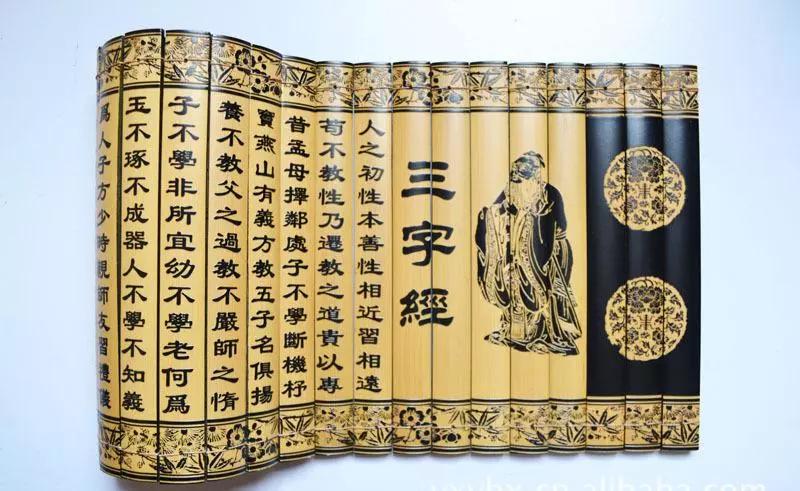 三字經
人之初性本善性相近習相遠
苟不教性乃遷教之道貴以專
昔孟母擇鄰處子不學斷機杼
竇燕山有義方教五子名俱揚
養不教父之過教不嚴師之惰
子不學非所宜幼不學老何為
玉不琢不成器人不學不知義
為人子方少時親師友習禮儀